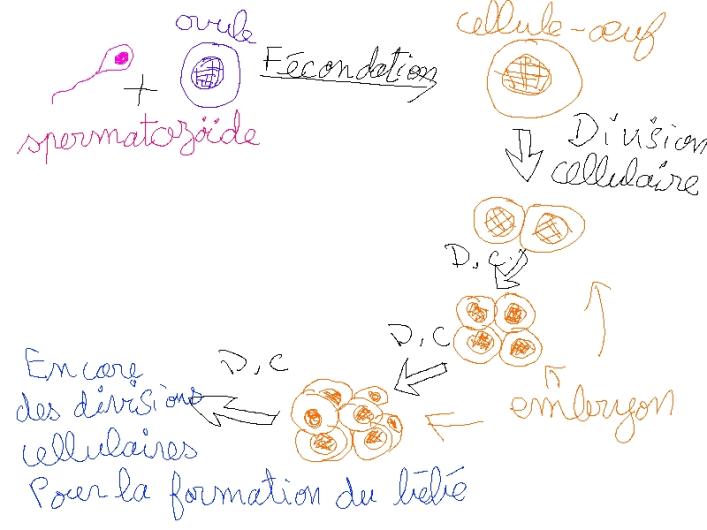 ovule
cellule-œuf
+
Fécondation
spermatozoïde
Division
cellulaire
D.C.
D.C
D.C
embryon
Encore
des divisions
cellulaires
Pour la formation du bébé